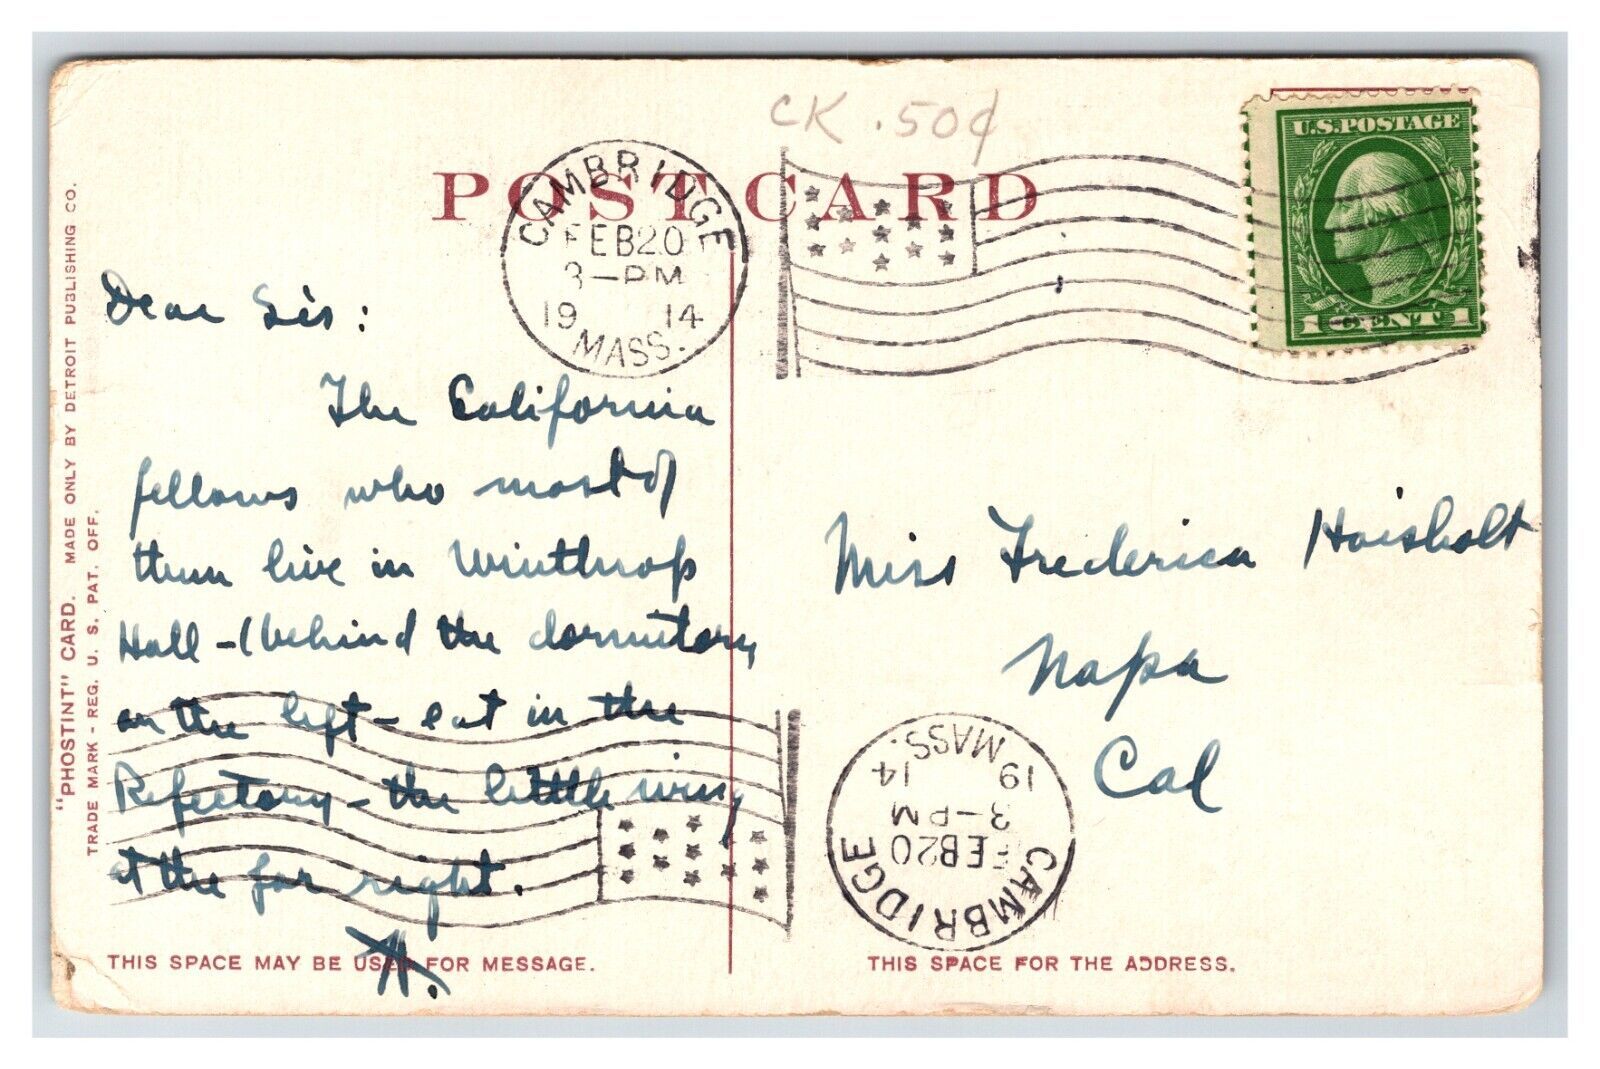 CK .50¢
POST CARD
U.S. POSTAGE
1 CENT 1
CAMBRIDGE
FEB20
3-PM
19 14
MASS.
Dear Sis:
The California
fellows who most of
them live in Winthrop
Hall – (behind the dormitory
on the left – eat in the
Refectory – the little wing
at the far right.
A.
Miss Frederica Hoisholt
Napa
Cal
CAMBRIDGE
FEB20
3-PM
19 14
MASS.
THIS SPACE MAY BE USED FOR MESSAGE.
THIS SPACE FOR THE ADDRESS.
"PHOSTINT" CARD. MADE ONLY BY DETROIT PUBLISHING CO.
TRADE MARK - REG. U. S. PAT. OFF.